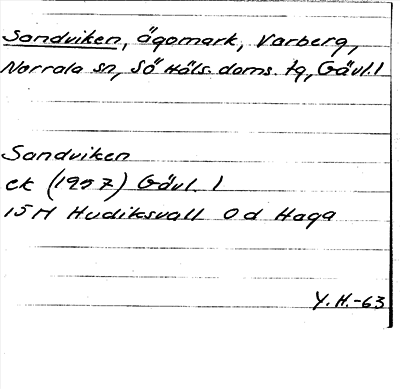 Sandviken, ägomark, Varberg,
Norrala sn, Sö Häls. doms. tg, Gävl. l
Sandviken
ek (1957) Gävl. l
15H Hudiksvall 0d Haga
Y.H.-63